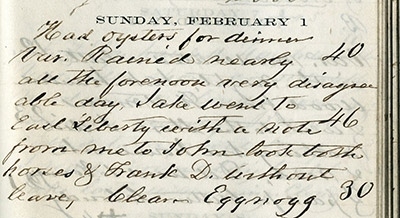 SUNDAY, FEBRUARY 1
Had oysters for dinner
Rained nearly 40
all the forenoon very disagree
able day. Jake went to
East Liberty with a note 46
from me to John took both
horses & Frank D. without
leave, Clear Eggnogg 30